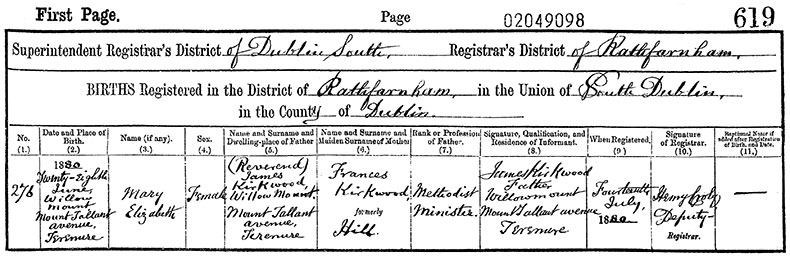 First Page. Page 02049098 619
Superintendent Registrar's District of Dublin South, Registrar's District of Rathfarnham,
BIRTHS Registered in the District of Rathfarnham, in the Union of South Dublin,
in the County of Dublin.
No. (1.)
Date and Place of Birth. (2.)
Name (if any). (3.)
Sex. (4.)
Name and Surname and Dwelling-place of Father (5.)
Name and Surname and Maiden Surname of Mother (6.)
Rank or Profession of Father. (7.)
Signature, Qualification, and Residence of Informant. (8.)
When Registered. (9.)
Signature of Registrar. (10.)
Baptismal Name if added after Registration of Birth, and Date. (11.)
276
1880
Twenty-Eighth
June,
Willow
Mount
Mount Tallant
avenue,
Terenure
Mary
Elizabeth
Female
(Reverend)
James
Kirkwood
Willow Mount.
Mount Tallant
avenue,
Terenure
Frances
Kirkwood,
formerly
Hill.
Methodist
Minister.
James Kirkwood
Father
Willowmount
Mount Tallant avenue
Terenure
Fourteenth
July,
1880
Henry
Deputy
Registrar.
—